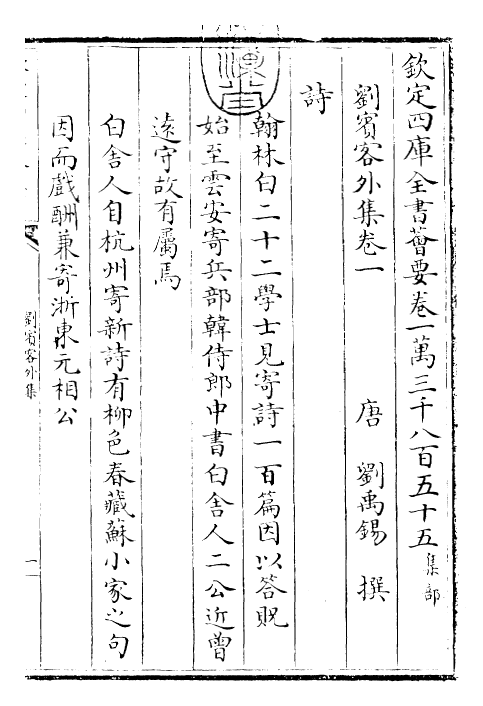 欽定四庫全書薈要卷一萬三千八百五十五集部
劉賓客外集卷一　唐　劉禹錫　撰
詩
翰林白二十二學士見寄詩一百篇因以答貺
始至雲安寄兵部韓侍郎中書白舍人二公近曾
遠守故有屬焉
白舍人自杭州寄新詩有柳色春藏蘇小家之句
因而戲酬兼寄浙東元相公
劉賓客外集